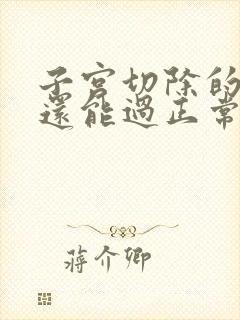 子宮切除的
還能過正常
蔣介卿